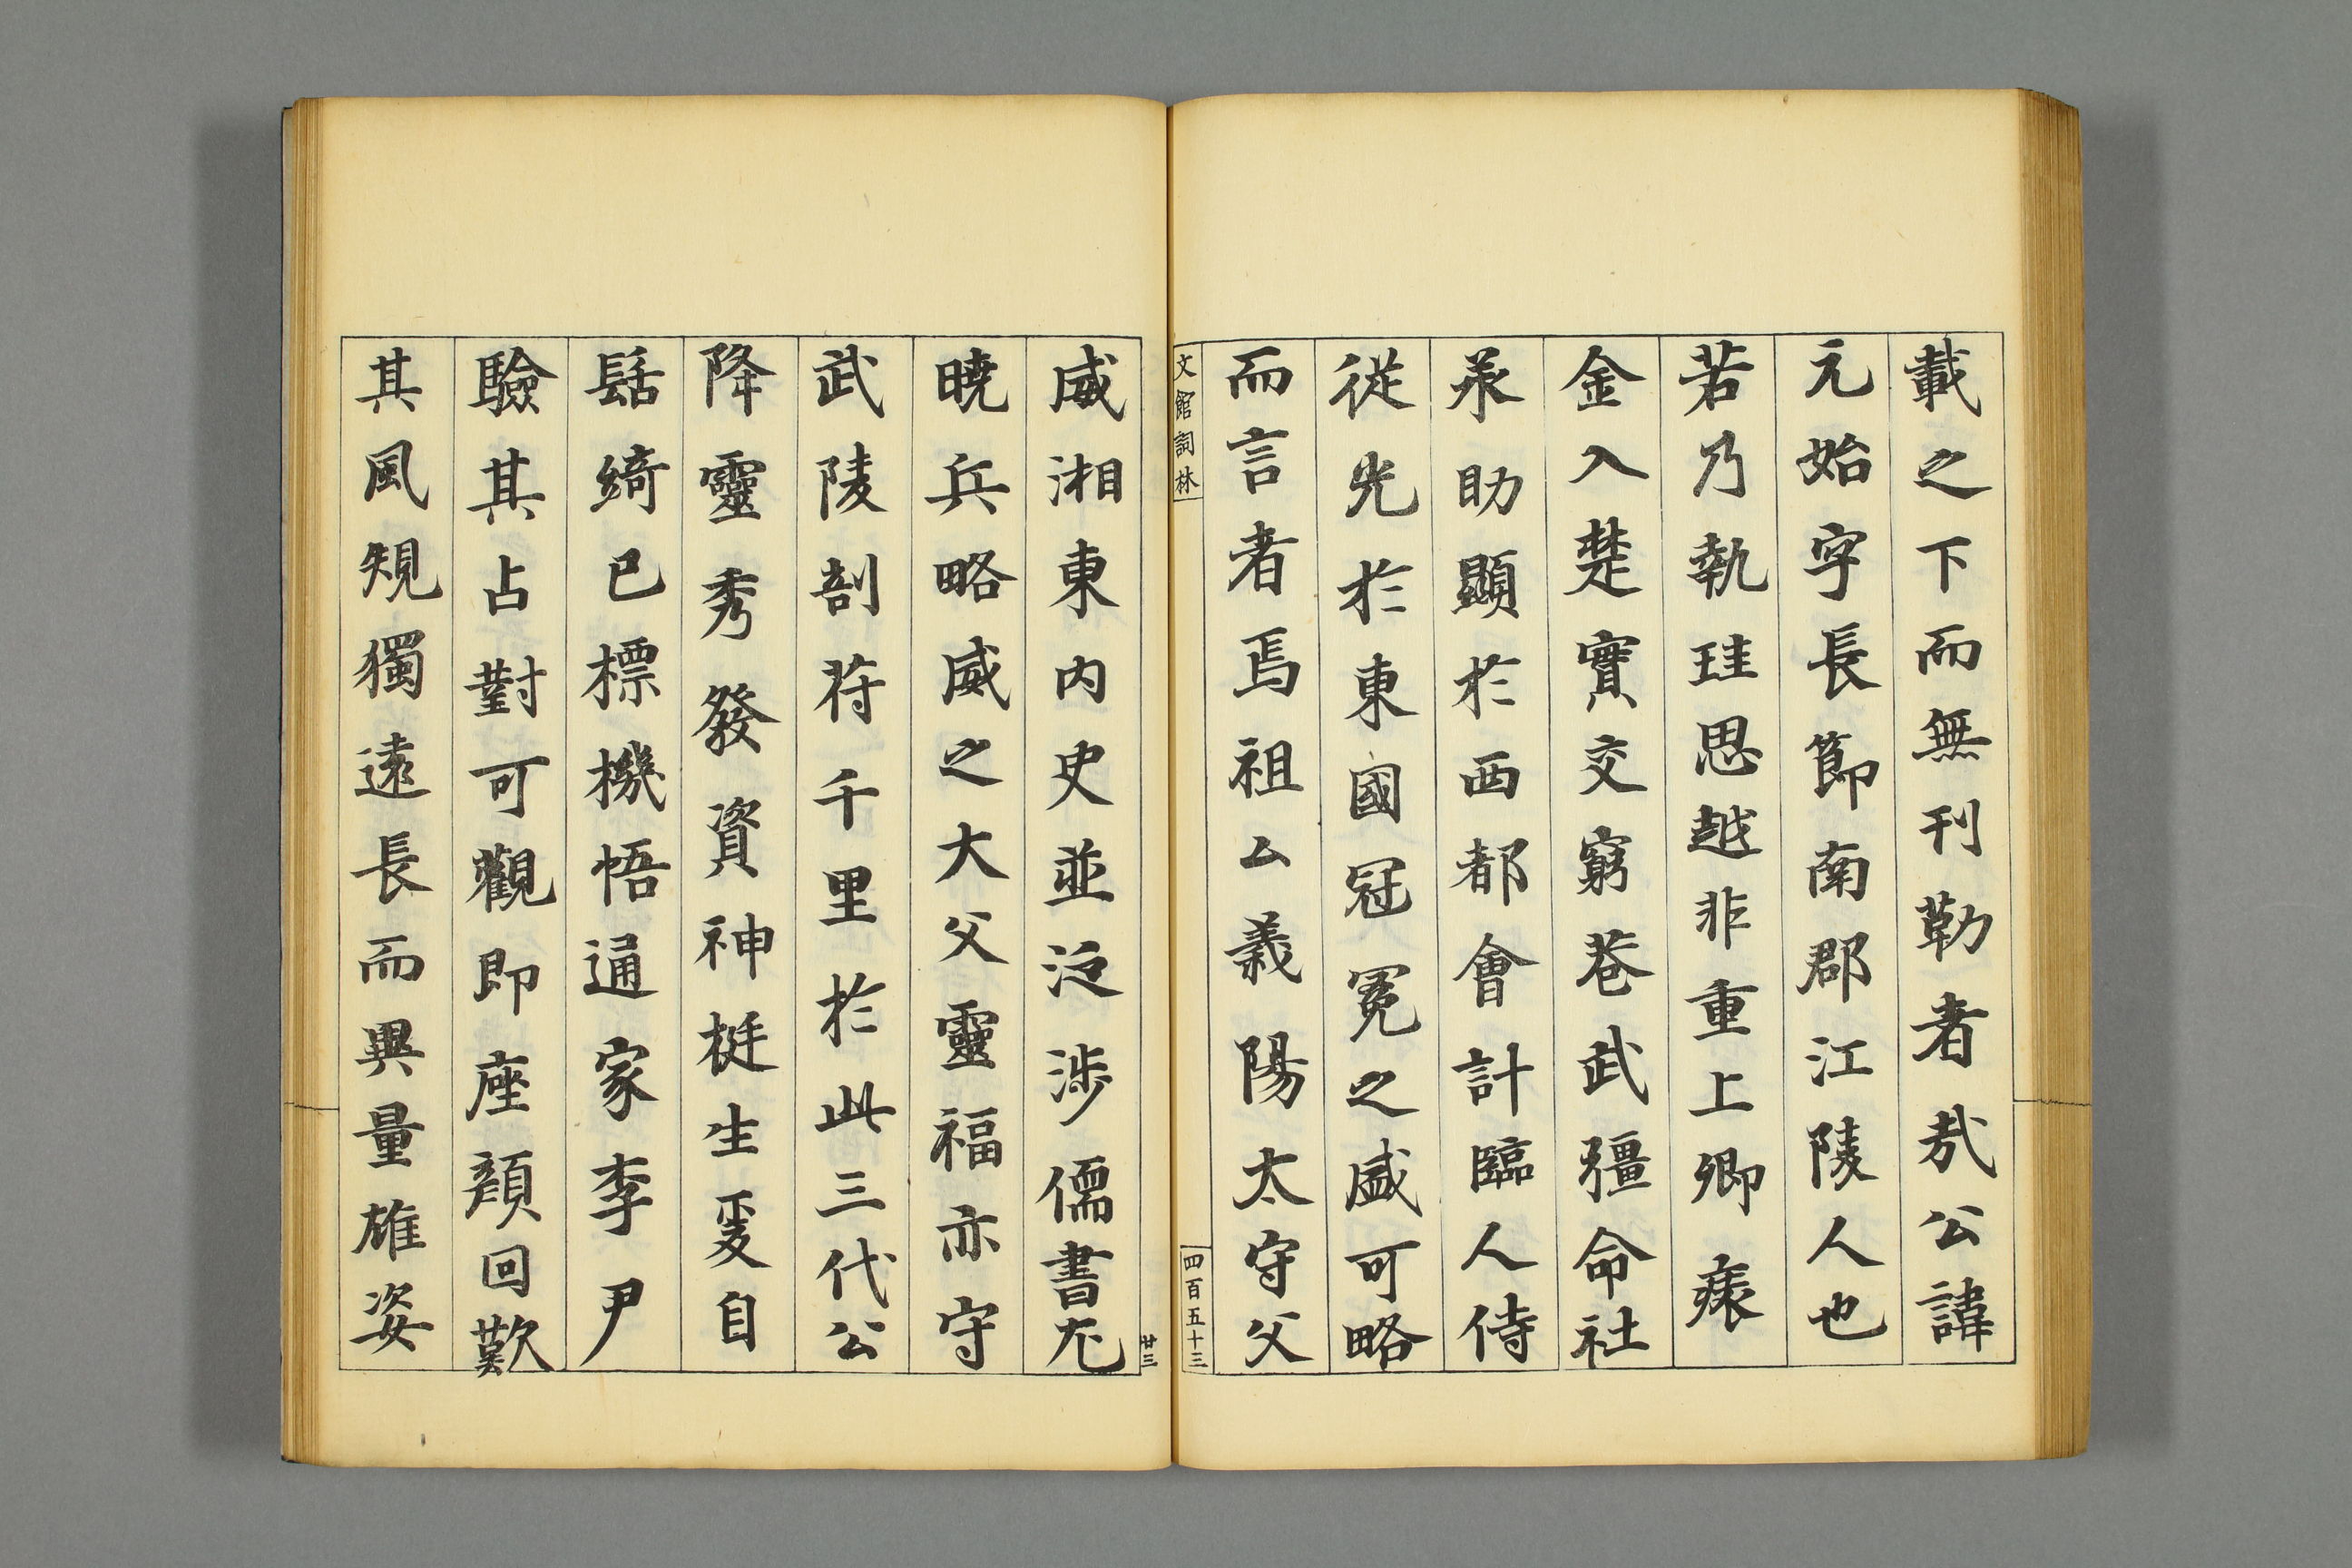 載之下而無刊勒者哉公諱
元始字長節南郡江陵人也
若乃執珪思越非重上卿瘞
金入楚實交窮巷武彊命社
承助顯於西都會計臨人侍
從光於東國冠冕之盛可略
而言者焉祖公義陽太守父
文館詞林
四百五十三
廿三
威湘東內史並泛涉儒書尤
曉兵略威之大父靈福亦守
武陵剖符千里於此三代公
降靈秀發資神挺生爰自
髫綺已標機悟通家李尹
驗其占對可觀即座顏回歎
其風規獨遠長而興量雄姿